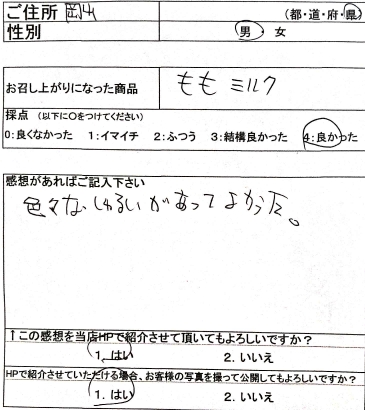 ご住所 岡山 (都・道・府・県)
性別 男・女
お召し上がりになった商品 ももミルク
採点 (以下に○をつけてください)
0:良くなかった 1:イマイチ 2:ふつう 3:結構良かった 4:良かった
感想があればご記入下さい
色々なしゅるいがあってよかった。
↑この感想を当店HPで紹介させて頂いてもよろしいですか?
1. はい 2. いいえ
HPで紹介させていただける場合、お客様の写真を撮って公開してもよろしいですか?
1. はい 2. いいえ